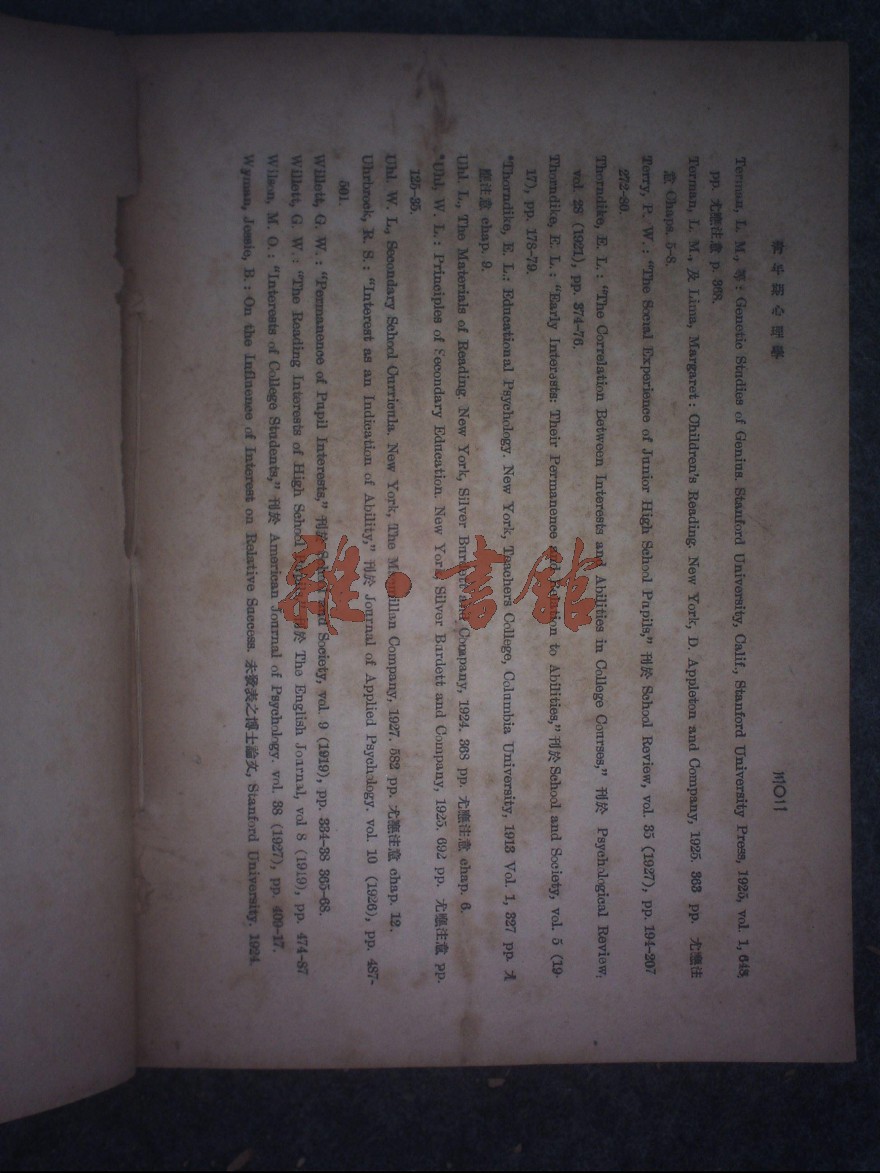 青年期心理學
三〇二
Terman, L. M., 等 : Genetic Studies of Genius. Stanford University, Calif., Stanford University Press, 1925, vol. 1, 648,
pp. 尤應注意 p. 368.
Terman, L. M., 及 Lima, Margaret : Children's Reading. New York, D. Appleton and Company, 1925. 363 pp. 尤應注
意 Chaps. 5-8.
Terry, P. W. : "The Social Experience of Junior High School Pupils," 刊於 School Review, vol. 35 (1927), pp. 194-207
272-80.
Thorndike, E. L. : "The Correlation Between Interests and Abilities in College Courses," 刊於 Psychological Review.
vol. 28 (1921), pp. 374-76.
Thorndike, E. L. : "Early Interests: Their Permanence and Relation to Abilities," 刊於 School and Society, vol. 5 (19-
17), pp. 178-79.
*Thorndike, E. L.: Educational Psychology. New York, Teachers College, Columbia University, 1913 Vol. 1, 327 pp. 尤
應注意 chap. 9.
Uhl. L., The Materials of Reading. New York, Silver Burdett and Company, 1924. 368 pp. 尤應注意 chap. 6.
*Uhl, W. L. : Principles of Secondary Education. New York, Silver Bardett and Company, 1925, 692 pp. 尤應注意 pp.
125-35.
Uhl. W. L., Secondary School Curricula. New York, The Macmillan Company, 1927. 582 pp. 尤應注意 chap. 12.
Uhrbrock, R. S. : "Interest as an Indication of Ability," 刊於 Journal of Applied Psychology. vol. 10 (1926), pp. 487-
501.
Willett, G. W. : "Permanence of Pupil Interests," 刊於 School and Society, vol. 9 (1919), pp. 334-38 365-68.
Willett, G. W. : "The Reading Interests of High School Pupils," 刊於 The English Journal, vol 8 (1919), pp. 474-87
Wilson, M. O. : "Interests of College Students," 刊於 American Journal of Psychology. vol. 38 (1927), pp. 409-17.
Wyman, Jessie, B. : On the Influence of Interest on Relative Success. 未發表之博士論文, Stanford University. 1924.
雅·書館